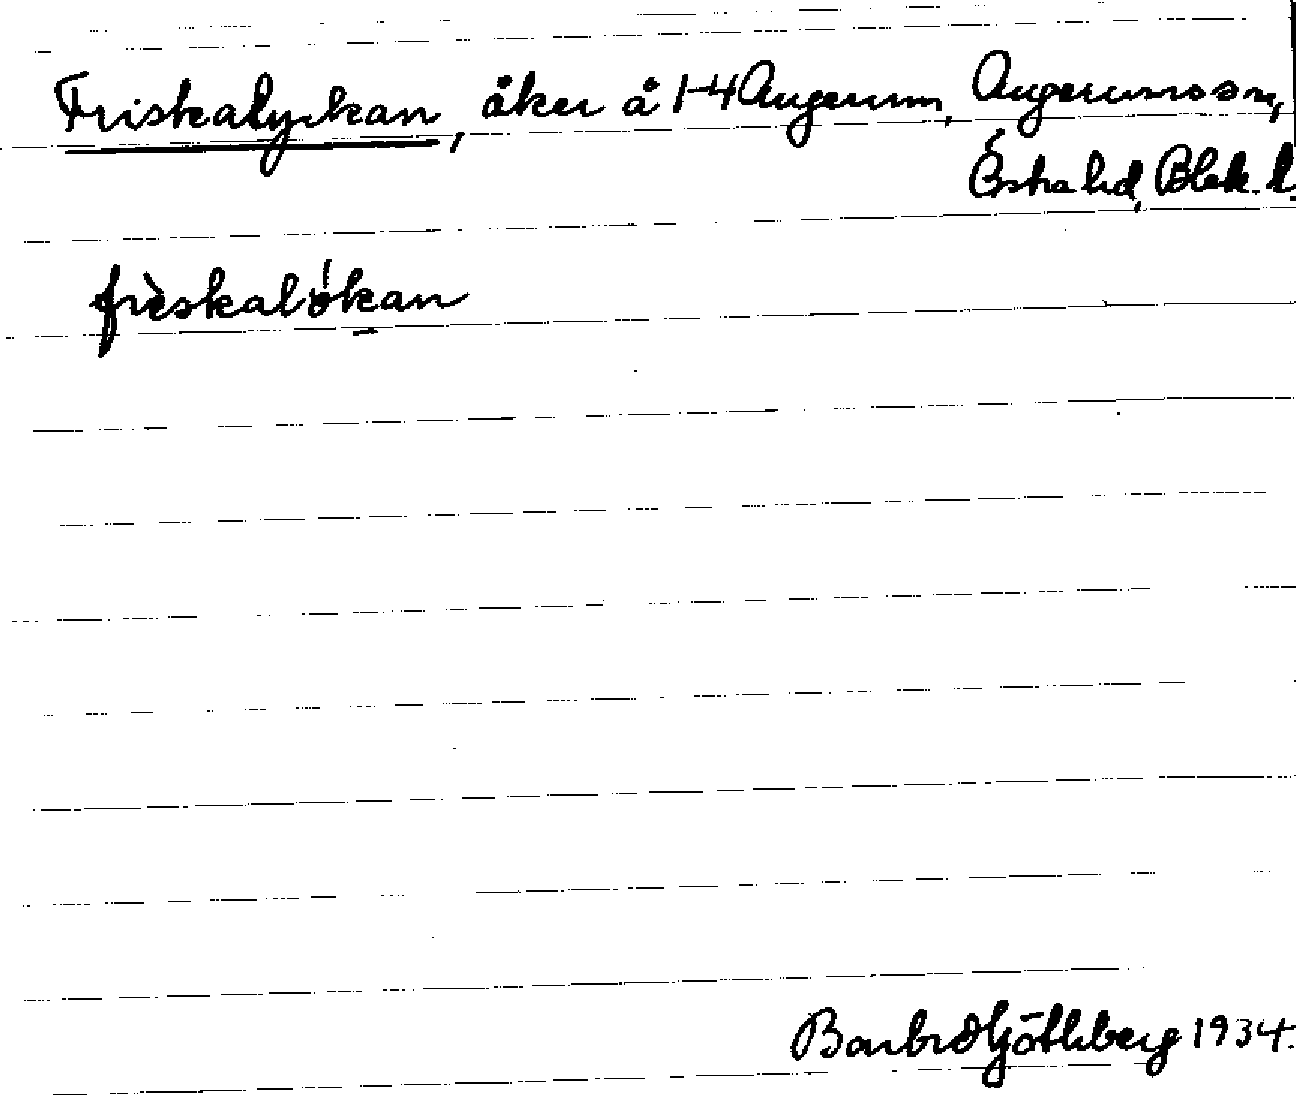 Friskalyckan, åker å 1-4 Augerum, Augerums sn,
Östra hd, Blek. l.
frìskalỏkan
Barbro Götlberg 1934.